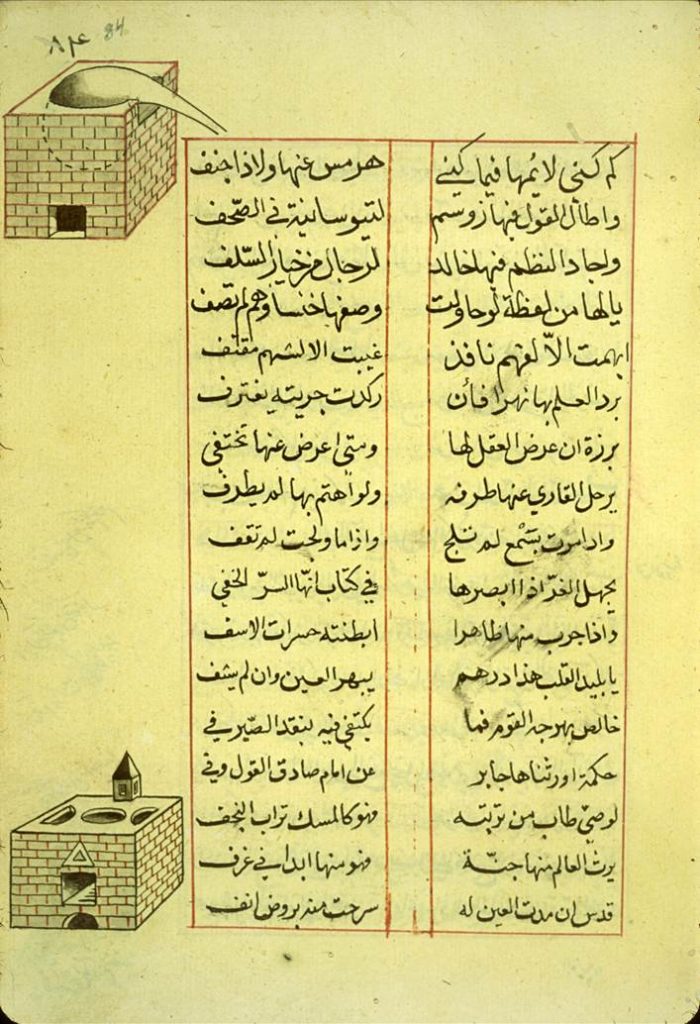 ٨٤ 84
كم كنى لايمها فيما كنى هرمس عنها ولاذا جنف
واطال القول فيها زوسم لتيوسانية في الصحف
ولجاد النظم فيها خالد لرجال من خيار السلف
يالها من لفظة لو حاولت وصفها خنسا وهم لم تصف
ابهمت الا لفهم نافذ غيبت الا لشهم مقتف
برد العلم بها نهرا فأن ركدت جريته يغترف
برزة ان عرض العقل لها ومتى اعرض عنها تختفي
يرحل القاري عنها طرفه ولو اهتم بها لم يطرف
واذا مرت بسمع لم تلج واذا ما ولجت لم تقف
يجهل الغر اذا ابصرها في كتاب انها السر الخفي
واذا جرب منها ظاهرا ابطنته حسرات الاسف
يا بليد القلب هذا درهم يبهر العين وان لم يشف
خالص بهرجه القوم فما يكتفى فيه بنقد الصيرفي
حكمة اورثناها جابر عن امام صادق القول وفي
لوصي طاب من تربته فهو كالمسك تراب النجف
يرث العالم منها جنة فهو منها ابدا في غرف
قدس ان مدت العين له سرحت منه بروض انف